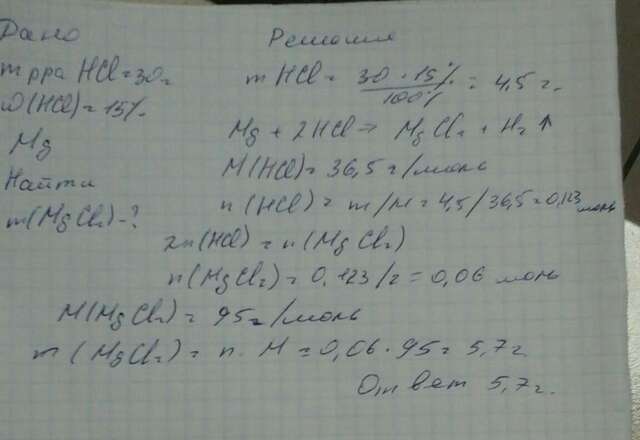 Дано
Решение
m рра HCl = 30г
m HCl = 30 · 15% / 100% = 4,5 г.
ω(HCl) = 15%
Mg + 2HCl → MgCl₂ + H₂↑
Mg
M(HCl) = 36,5 г/моль
Найти
n(HCl) = m/M = 4,5/36,5 = 0,123 моль
m(MgCl₂) - ?
2n(HCl) = n(MgCl₂)
n(MgCl₂) = 0,123/2 = 0,06 моль
M(MgCl₂) = 95 г/моль
m(MgCl₂) = n · M = 0,06 · 95 = 5,7 г
Ответ 5,7 г.